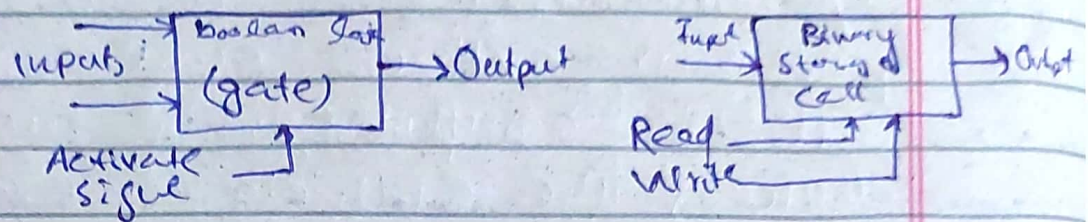 Inputs
Boolean
(gate)
Output
Activate
Input
Binary
Storage
Cell
Output
Read
Write